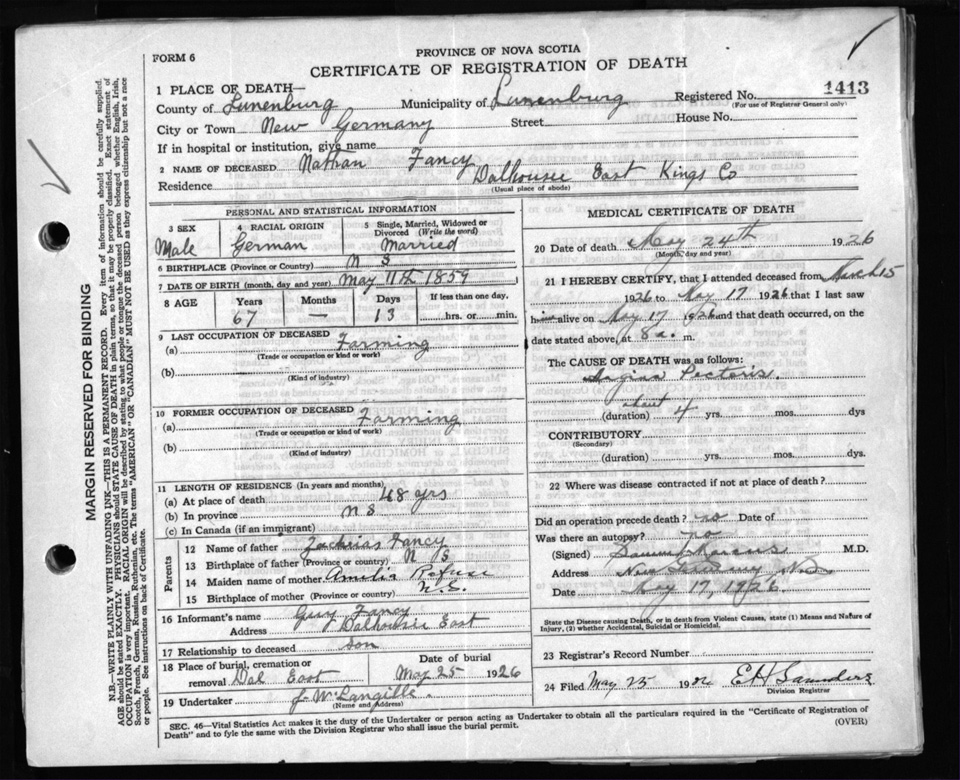 FORM 6
PROVINCE OF NOVA SCOTIA
CERTIFICATE OF REGISTRATION OF DEATH
1413
1 PLACE OF DEATH—
Registered No.
(For use of Registrar General only)
County of Lunenburg Municipality of Lunenburg
City or Town New Germany Street House No.
If in hospital or institution, give name
2 NAME OF DECEASED Nathan Fancy
Residence Dalhousie East Kings Co
(Usual place of abode)
PERSONAL AND STATISTICAL INFORMATION
3 SEX 4 RACIAL ORIGIN 5 Single, Married, Widowed or Divorced (Write the word)
Male German Married
6 BIRTHPLACE (Province or Country) N S
7 DATE OF BIRTH (month, day and year) May 11th 1859
8 AGE Years Months Days If less than one day.
67 — 13 hrs. or min.
9 LAST OCCUPATION OF DECEASED
(a) Farming
(Trade or occupation or kind or work)
(b)
(Kind of industry)
10 FORMER OCCUPATION OF DECEASED
(a) Farming
(Trade or occupation or kind of work)
(b)
(Kind of industry)
11 LENGTH OF RESIDENCE (In years and months)
(a) At place of death 48 yrs
(b) In province N S
(c) In Canada (if an immigrant)
Parents
12 Name of father Zachrias Fancy
13 Birthplace of father (Province or country) N S
14 Maiden name of mother Amelia
15 Birthplace of mother (Province or country) N.S.
16 Informant's name Guy Fancy
Address Dalhousie East
17 Relationship to deceased son
18 Place of burial, cremation or removal Dal East
Date of burial May 25 1926
19 Undertaker J W Langille
(Name and Address)
MEDICAL CERTIFICATE OF DEATH
20 Date of death May 24th 1926
(Month, day and year)
21 I HEREBY CERTIFY, that I attended deceased from March 15
1926 to May 17 1926 that I last saw
him alive on May 17 1926 and that death occurred, on the
date stated above, at 8 a. m.
The CAUSE OF DEATH was as follows:
Angina Pectoris
about
(duration) 4 yrs. mos. dys
CONTRIBUTORY
(Secondary)
(duration) yrs. mos. dys.
22 Where was disease contracted if not at place of death?
Did an operation precede death? no Date of
Was there an autopsy? no
(Signed) M.D.
Address New Germany N.S.
Date May 17, 1926.
State the Disease causing Death, or in death from Violent Causes, state (1) Means and Nature of Injury, (2) whether Accidental, Suicidal or Homicidal.
23 Registrar's Record Number
24 Filed May 25 1926 E H Saunders
Division Registrar
SEC. 46—Vital Statistics Act makes it the duty of the Undertaker or person acting as Undertaker to obtain all the particulars required in the "Certificate of Registration of
Death" and to fyle the same with the Division Registrar who shall issue the burial permit.
(OVER)
MARGIN RESERVED FOR BINDING
N.B.—WRITE PLAINLY WITH UNFADING INK—THIS IS A PERMANENT RECORD. Every item of information should be carefully supplied.
AGE should be stated EXACTLY. PHYSICIANS should STATE CAUSE OF DEATH in plain terms, so that it may be properly classified. Exact statement of
OCCUPATION is very important. RACIAL ORIGIN will be described by stating to what people or tongue the deceased person belonged whether English, Irish,
Scotch, French, German, Russian, Ruthenian, etc. The terms "AMERICAN" OR "CANADIAN" MUST NOT BE USED as they express citizenship but not a race
or people. See instructions on back of Certificate.